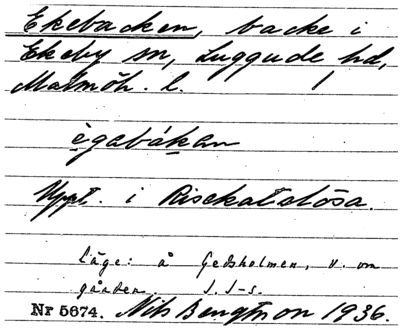 Ekebacken, backe i
Ekeby sn, Luggude hd,
Malmöh. l.
ègabákan
Uppt. i Risekatslösa.
Läge: å Gedsholmen, v. om
gården. J. I-s.
Nr 5674. Nils Bengtson 1936.